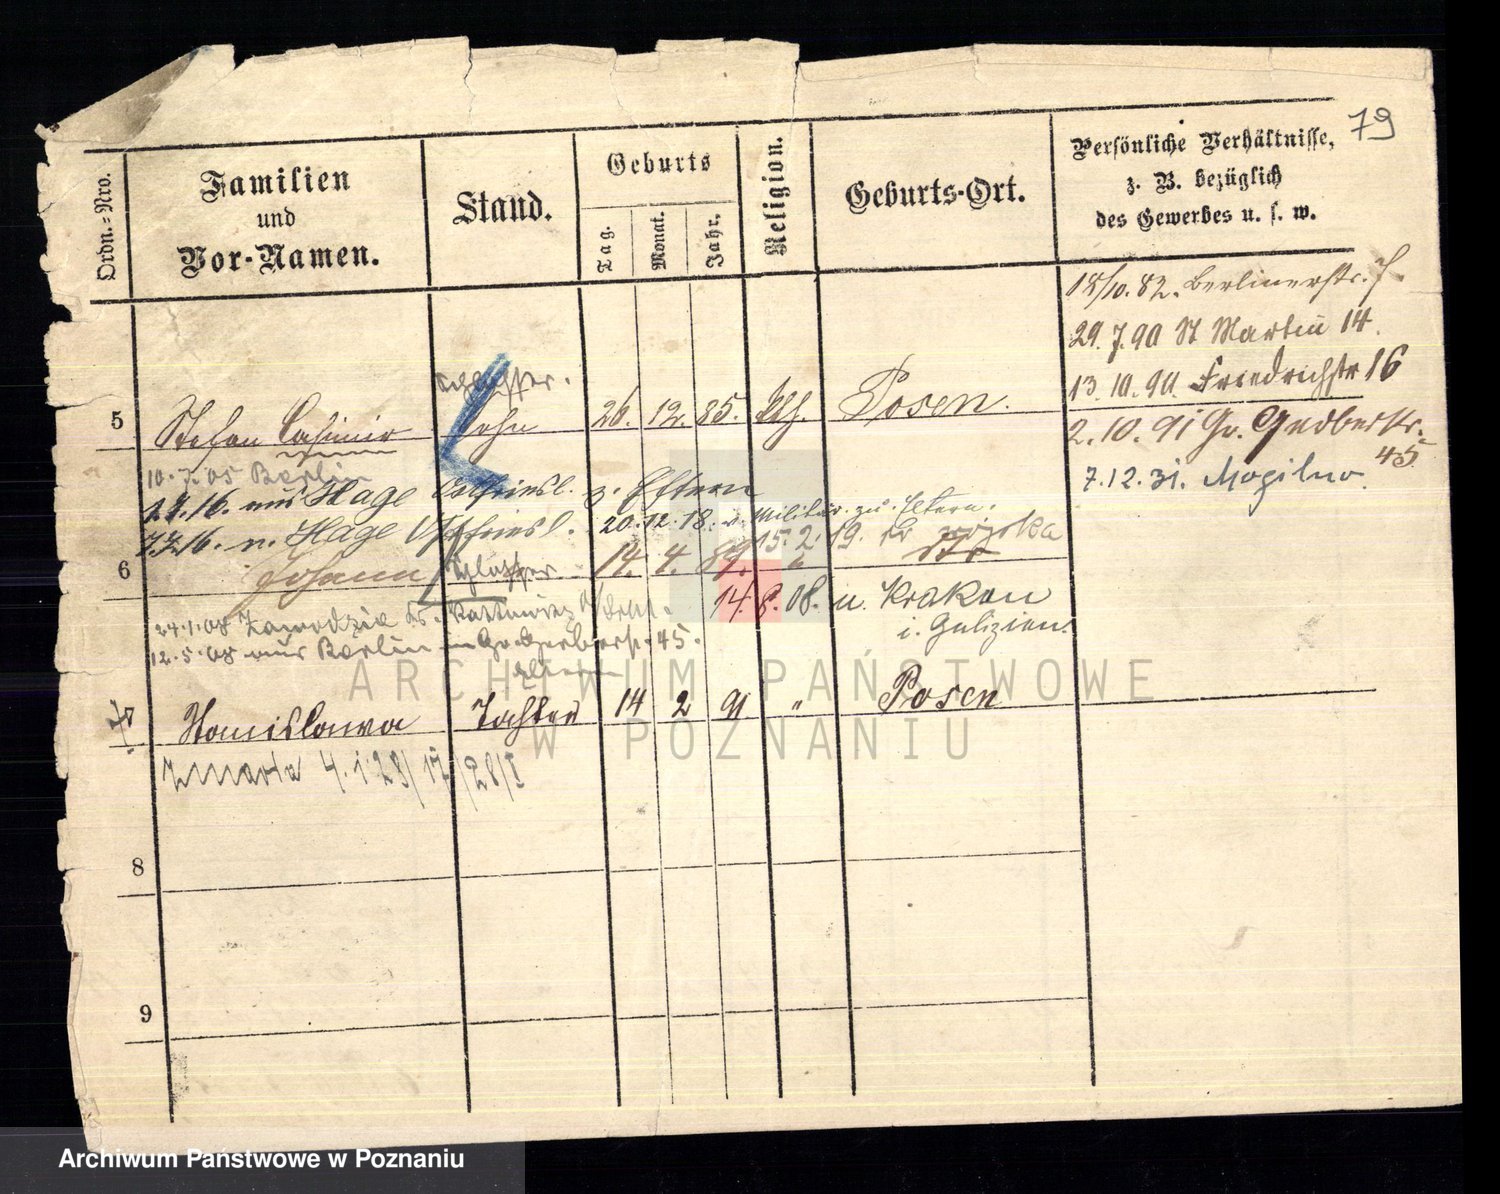 79
Ordn.-Nro.
Familien
und
Vor-Namen.
Stand.
Geburts
Tag.
Monat.
Jahr.
Religion.
Geburts-Ort.
Persönliche Verhältnisse,
z. B. bezüglich
des Gewerbes u. s. w.
18/10. 82. Berlinerstr.
29. 7. 90 St Martin 14.
13. 10. 90. Friedrichstr 16
2. 10. 91 Gr. Gerberstr.
45
7. 12. 31. Mogilno.
Schlosser.
5 Stefan Casimir Sohn 26. 12. 85. kth. Posen.
10. 7. 05 Berlin
16. aus Hage Ostfriesl. z. Eltern
16. n. Hage Ostfriesl. 20. 12. 18. v. Militär zu Eltern.
15. 2. 19. do wojska
6 Johann Schlosser 14. 4. 89. "
24. 1. 08 Zawodzie Kr. Kattowitz
14. 8. 08. n. Krakau
i. Galizien.
12. 5. 08 aus Berlin Gr. Gerberstr. 45.
7 Stanislawa Tochter 14 2 91 " Posen
Zmarła 4. 1. 28/17/28/I
8
9
ARCHIWUM PAŃSTWOWE
W POZNANIU
Archiwum Państwowe w Poznaniu